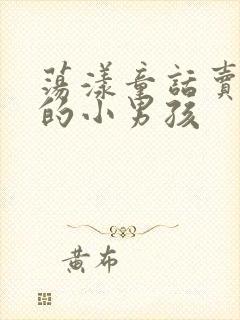 蕩漾童話賣
的小男孩
黃布